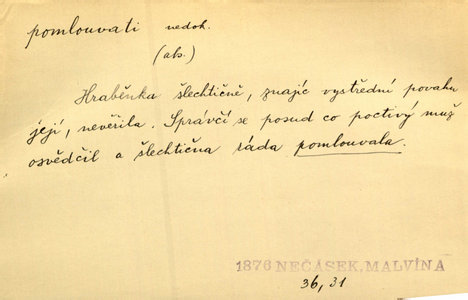 pomlouvati nedok.
(abs.)
Hraběnka šlechtičně, znajíc výstřední povahu
její, nevěřila. Správčí se posud co poctivý muž
osvědčil a šlechtična ráda pomlouvala.
1876 NEČÁSEK, MALVÍNA
36, 31